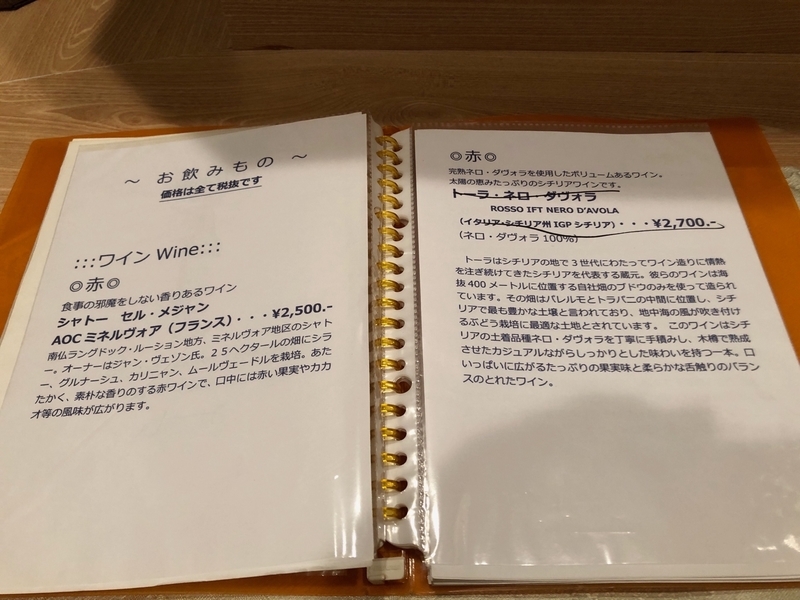 ～ お飲みもの ～
価格は全て税抜です
:::ワイン Wine:::
◎赤◎
食事の邪魔をしない香りあるワイン
シャトー セル・メジャン
AOC ミネルヴォア（フランス）・・・¥2,500.-
南仏ラングドック・ルーション地方、ミネルヴォア地区のシャト
ー。オーナーはジャン・ヴェゾン氏。２５ヘクタールの畑にシラ
ー、グルナーシュ、カリニャン、ムールヴェードルを栽培。あた
たかく、素朴な香りのする赤ワインで、口中には赤い果実やカカ
オ等の風味が広がります。
◎赤◎
完熟ネロ・ダヴォラを使用したボリュームあるワイン。
太陽の恵みたっぷりのシチリアワインです。
トーラ・ネロ・ダヴォラ
ROSSO IFT NERO D'AVOLA
（イタリア・シチリア州 IGP シチリア）・・・¥2,700.-
(ネロ・ダヴォラ 100%)
トーラはシチリアの地で 3 世代にわたってワイン造りに情熱
を注ぎ続けてきたシチリアを代表する蔵元。彼らのワインは海
抜 400 メートルに位置する自社畑のブドウのみを使って造られ
ています。その畑はパレルモとトラパニの中間に位置し、シチ
リアで最も豊かな土壌と言われており、地中海の風が吹き付け
るぶどう栽培に最適な土地とされています。 このワインはシチ
リアの土着品種ネロ・ダヴォラを丁寧に手積みし、木樽で熟成
させたカジュアルながらしっかりとした味わいを持つ一本。口
いっぱいに広がるたっぷりの果実味と柔らかな舌触りのバラン
スのとれたワイン。